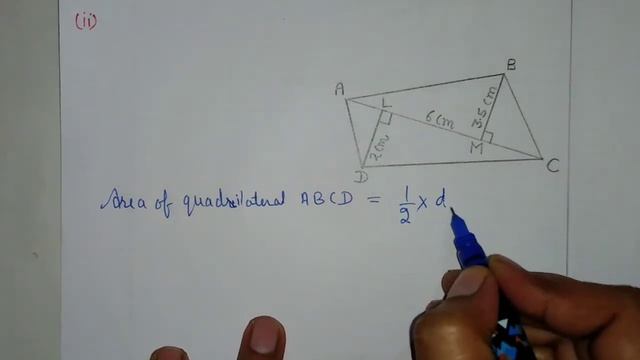 (ii)
A
B
L
6 cm
3.5 cm
M
2 cm
D
C
Area of quadrilateral ABCD = 1/2 × d